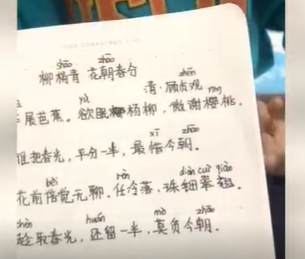 shāo zhāo
柳梢青 花朝春分
zhēn
清·顾贞观
yà
展芭蕉。欲眠杨柳，微谢樱桃。
xī zhāo
把春光，平分一半，最惜今朝。
bèi rèn diàn cuì qiào
花前倍觉无聊。任冷落，珠钿翠翘。
chèn huán mò zhāo
趁取春光，还留一半，莫负今朝。